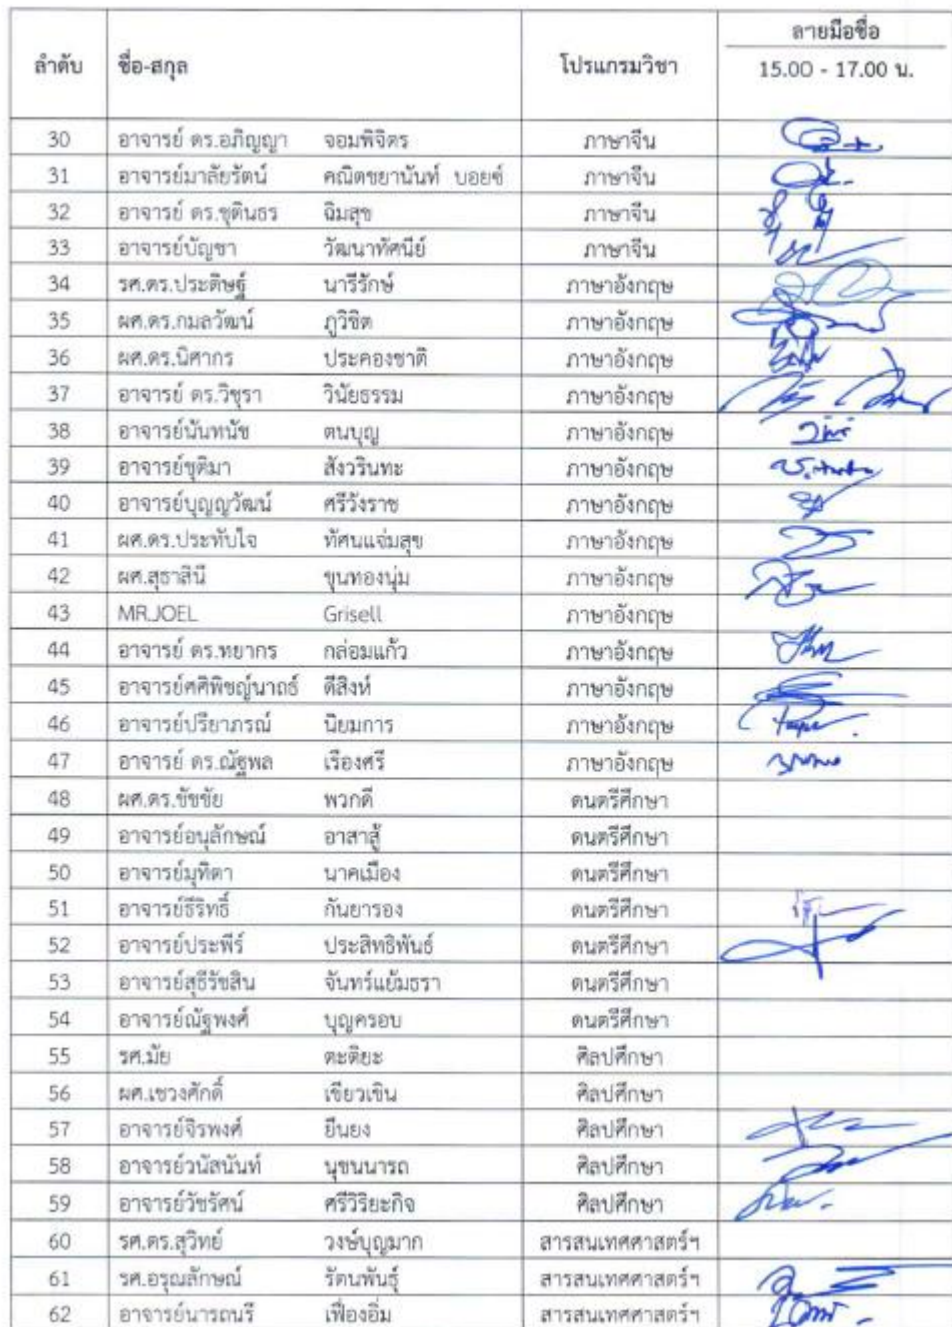 ลำดับ ชื่อ-สกุล โปรแกรมวิชา ลายมือชื่อ
15.00 - 17.00 น.
30 อาจารย์ ดร.อภิญญา จอมพิจิตร ภาษาจีน
31 อาจารย์มาลัยรัตน์ คณิตชยานันท์ บอยซ์ ภาษาจีน
32 อาจารย์ ดร.ชุตินธร ฉิมสุข ภาษาจีน
33 อาจารย์บัญชา วัฒนาทัศนีย์ ภาษาจีน
34 รศ.ดร.ประดิษฐ์ นารีรักษ์ ภาษาอังกฤษ
35 ผศ.ดร.กมลวัฒน์ ภูวิชิต ภาษาอังกฤษ
36 ผศ.ดร.นิศากร ประคองชาติ ภาษาอังกฤษ
37 อาจารย์ ดร.วิชุรา วินัยธรรม ภาษาอังกฤษ
38 อาจารย์นันทนัช ตนบุญ ภาษาอังกฤษ
39 อาจารย์ชุติมา สังวรินทะ ภาษาอังกฤษ
40 อาจารย์บุญญวัฒน์ ศรีวังราช ภาษาอังกฤษ
41 ผศ.ดร.ประทับใจ ทัศนแจ่มสุข ภาษาอังกฤษ
42 ผศ.สุธาสินี ขุนทองนุ่ม ภาษาอังกฤษ
43 MR.JOEL Grisell ภาษาอังกฤษ
44 อาจารย์ ดร.ทยากร กล่อมแก้ว ภาษาอังกฤษ
45 อาจารย์ศศิพิชญ์นาถธ์ ดีสิงห์ ภาษาอังกฤษ
46 อาจารย์ปรียาภรณ์ นิยมการ ภาษาอังกฤษ
47 อาจารย์ ดร.ณัฐพล เรืองศรี ภาษาอังกฤษ
48 ผศ.ดร.ชัชชัย พวกดี ดนตรีศึกษา
49 อาจารย์อนุลักษณ์ อาสาสู้ ดนตรีศึกษา
50 อาจารย์มุทิตา นาคเมือง ดนตรีศึกษา
51 อาจารย์ธีริทธิ์ กันยารอง ดนตรีศึกษา
52 อาจารย์ประพีร์ ประสิทธิพันธ์ ดนตรีศึกษา
53 อาจารย์สุธีรัชสิน จันทร์แย้มธรา ดนตรีศึกษา
54 อาจารย์ณัฐพงศ์ บุญครอบ ดนตรีศึกษา
55 รศ.มัย ตะติยะ ศิลปศึกษา
56 ผศ.เชวงศักดิ์ เขียวเขิน ศิลปศึกษา
57 อาจารย์จิรพงศ์ ยืนยง ศิลปศึกษา
58 อาจารย์วนัสนันท์ นุชนนารถ ศิลปศึกษา
59 อาจารย์วัชรัศน์ ศรีวิริยะกิจ ศิลปศึกษา
60 รศ.ดร.สุวิทย์ วงษ์บุญมาก สารสนเทศศาสตร์ฯ
61 รศ.อรุณลักษณ์ รัตนพันธุ์ สารสนเทศศาสตร์ฯ
62 อาจารย์นารถนรี เฟื่องอิ่ม สารสนเทศศาสตร์ฯ